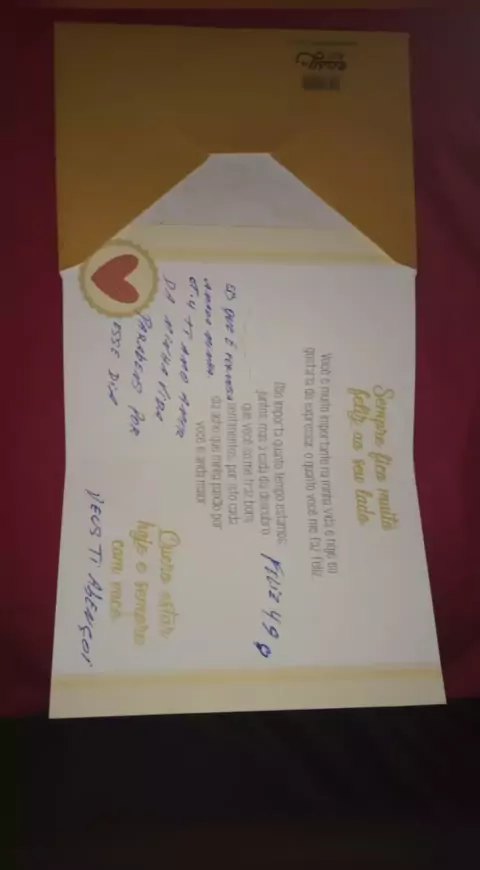 Sempre fico muito
feliz ao seu lado
Você é muito importante na minha vida e hoje eu
gostaria de expressar, o quanto você me faz feliz.
Não importa quanto tempo estamos
juntos, mas a cada dia descubro
que você só me traz bons
sentimentos, por isto cada
dia acho que minha paixão por
você é ainda maior
FELIZ 49
Quero estar
hoje e sempre
com você
QUE É
EU TI AMO AMOR
DA MINHA VIDA
PARABÉNS POR
ESSE DIA
DEUS TI ABENÇOI